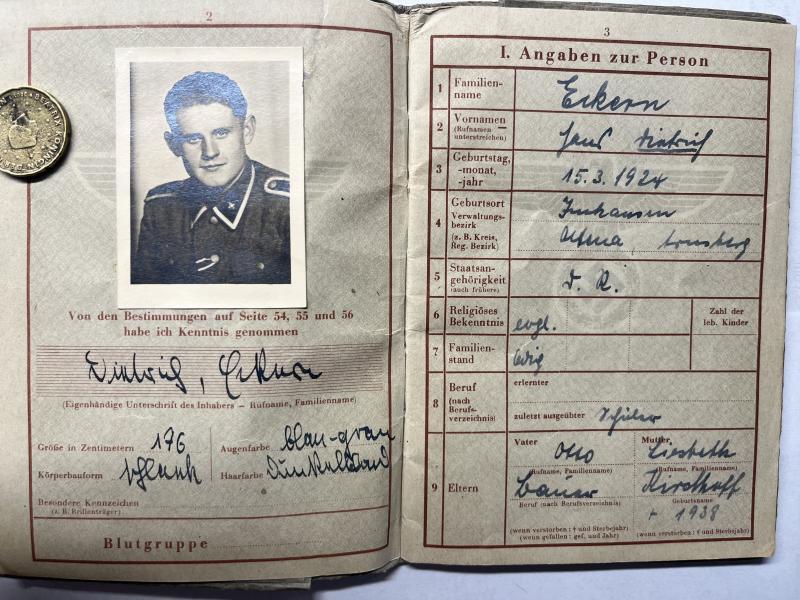 2
Von den Bestimmungen auf Seite 54, 55 und 56
habe ich Kenntnis genommen
Dietrich, Eckern
(Eigenhändige Unterschrift des Inhabers – Rufname, Familienname)
Größe in Zentimetern 176 Augenfarbe blau-grau
Körperbauform schlank Haarfarbe Dunkelblond
Besondere Kennzeichen
(z. B. Brillenträger)
Blutgruppe
3
I. Angaben zur Person
1 Familien-
name Eckern
2 Vornamen
(Rufnamen
unterstreichen) Hans Dietrich
3 Geburtstag,
-monat,
-jahr 15.3.1924
4 Geburtsort
Verwaltungs-
bezirk
(z. B. Kreis,
Reg. Bezirk)
Unna, Arnsberg
5 Staatsan-
gehörigkeit
(auch frühere) D. R.
6 Religiöses
Bekenntnis evgl.
Zahl der
leb. Kinder
7 Familien-
stand ledig
8 Beruf
(nach
Berufs-
verzeichnis)
erlernter
zuletzt ausgeübter Schüler
9 Eltern
Vater Otto
(Rufname, Familienname)
Bauer
Beruf (nach Berufsverzeichnis)
(wenn verstorben: † und Sterbejahr)
(wenn gefallen: gef. und Jahr)
Mutter Liesbeth
(Rufname, Familienname)
Kirchhoff
Geburtsname
† 1938
(wenn verstorben: † und Sterbejahr)